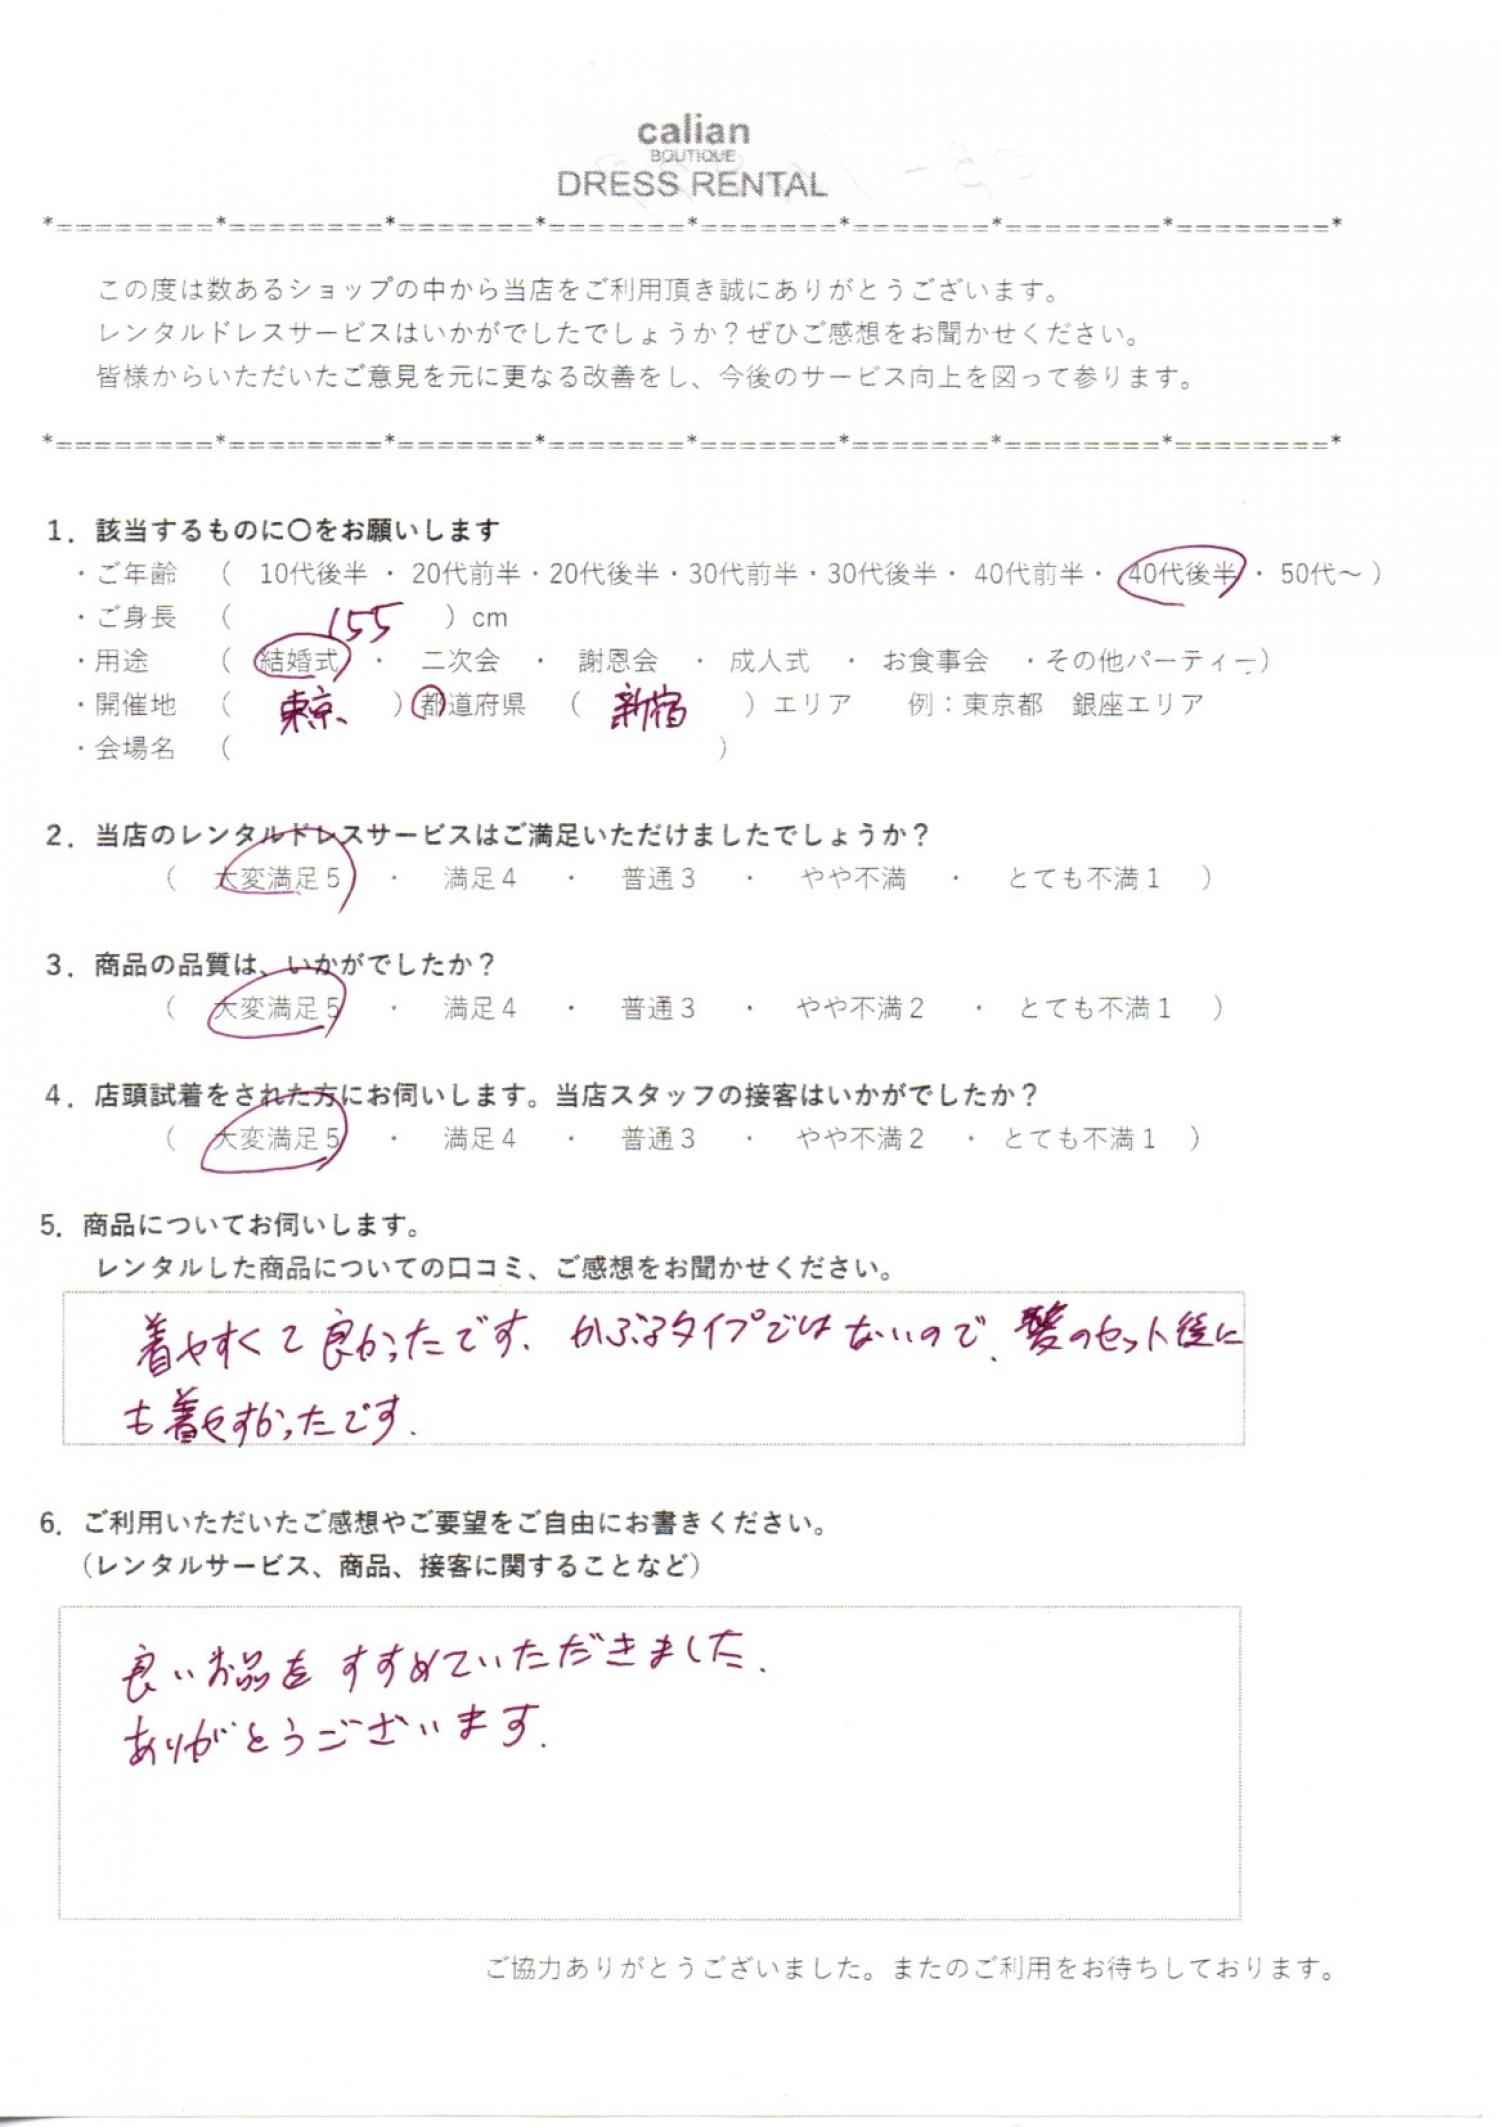 calian
BOUTIQUE
DRESS RENTAL
*========*========*=======*=======*=======*=======*========*========*
この度は数あるショップの中から当店をご利用頂き誠にありがとうございます。
レンタルドレスサービスはいかがでしたでしょうか？ぜひご感想をお聞かせください。
皆様からいただいたご意見を元に更なる改善をし、今後のサービス向上を図って参ります。
*========*========*=======*=======*=======*=======*========*========*
1．該当するものに〇をお願いします
・ご年齢　（　10代後半 ・ 20代前半・20代後半・30代前半・30代後半・ 40代前半・ 40代後半 ・ 50代～ ）
・ご身長　（　155　）cm
・用途　（　結婚式　・　二次会　・　謝恩会　・ 成人式　・ お食事会　・その他パーティー）
・開催地　（　東京　）都道府県　（　新宿　）エリア　例：東京都　銀座エリア
・会場名　（　　）
2．当店のレンタルドレスサービスはご満足いただけましたでしょうか？
（　大変満足５　・　満足４　・　普通３　・　やや不満　・　とても不満１　）
3．商品の品質は、いかがでしたか？
（　大変満足５　・　満足４　・　普通３　・　やや不満２　・　とても不満１　）
4．店頭試着をされた方にお伺いします。当店スタッフの接客はいかがでしたか？
（　大変満足５　・　満足４　・　普通３　・　やや不満２　・ とても不満１　）
5．商品についてお伺いします。
レンタルした商品についての口コミ、ご感想をお聞かせください。
着やすくて良かったです。かぶるタイプではないので、髪のセット後に
も着やすかったです。
6．ご利用いただいたご感想やご要望をご自由にお書きください。
（レンタルサービス、商品、接客に関することなど）
良いお品をすすめていただきました。
ありがとうございます。
ご協力ありがとうございました。またのご利用をお待ちしております。